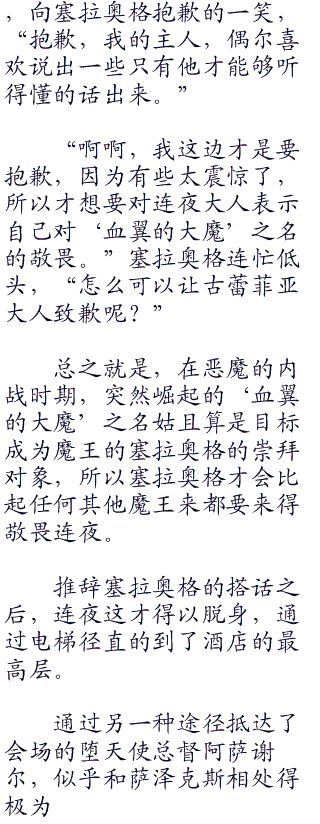 ，向塞拉奥格抱歉的一笑，
“抱歉，我的主人，偶尔喜
欢说出一些只有他才能够听
得懂的话出来。”
“啊啊，我这边才是要
抱歉，因为有些太震惊了，
所以才想要对连夜大人表示
自己对‘血翼的大魔’之名
的敬畏。”塞拉奥格连忙低
头，“怎么可以让古蕾菲亚
大人致歉呢？”
总之就是，在恶魔的内
战时期，突然崛起的‘血翼
的大魔’之名姑且算是目标
成为魔王的塞拉奥格的崇拜
对象，所以塞拉奥格才会比
起任何其他魔王来都要来得
敬畏连夜。
推辞塞拉奥格的搭话之
后，连夜这才得以脱身，通
过电梯径直的到了酒店的最
高层。
通过另一种途径抵达了
会场的堕天使总督阿萨谢
尔，似乎和萨泽克斯相处得
极为